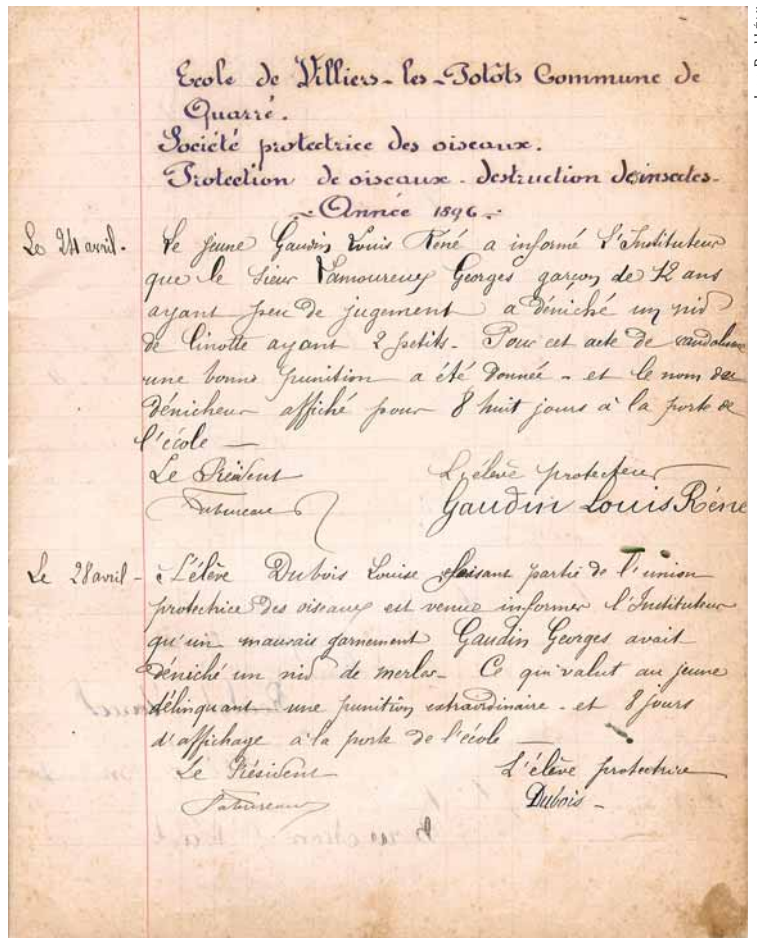 Ecole de Villiers-les-Potôts Commune de
Quarré.
Société protectrice des oiseaux.
Protection de oiseaux - destruction d'insectes-
- Année 1896 -
Le 24 avril - Le jeune Gaudin Louis René a informé l'Instituteur
que le sieur Lamoureux Georges garçon de 12 ans
ayant peu de jugement a déniché un nid
de linotte ayant 2 petits - Pour cet acte de vandalisme
une bonne punition a été donnée - et le nom du
dénicheur affiché pour 8 huit jours à la porte de
l'école —
Le Président L'élève protecteur
Gaudin Louis Réné
Le 28 avril - L'élève Dubois Louise faisant partie de l'union
protectrice des oiseaux est venue informer l'Instituteur
qu'un mauvais garnement Gaudin Georges avait
déniché un nid de merles - Ce qui valut au jeune
délinquant une punition extraordinaire - et 8 jours
d'affichage à la porte de l'école —
Le Président L'élève protectrice
Dubois -